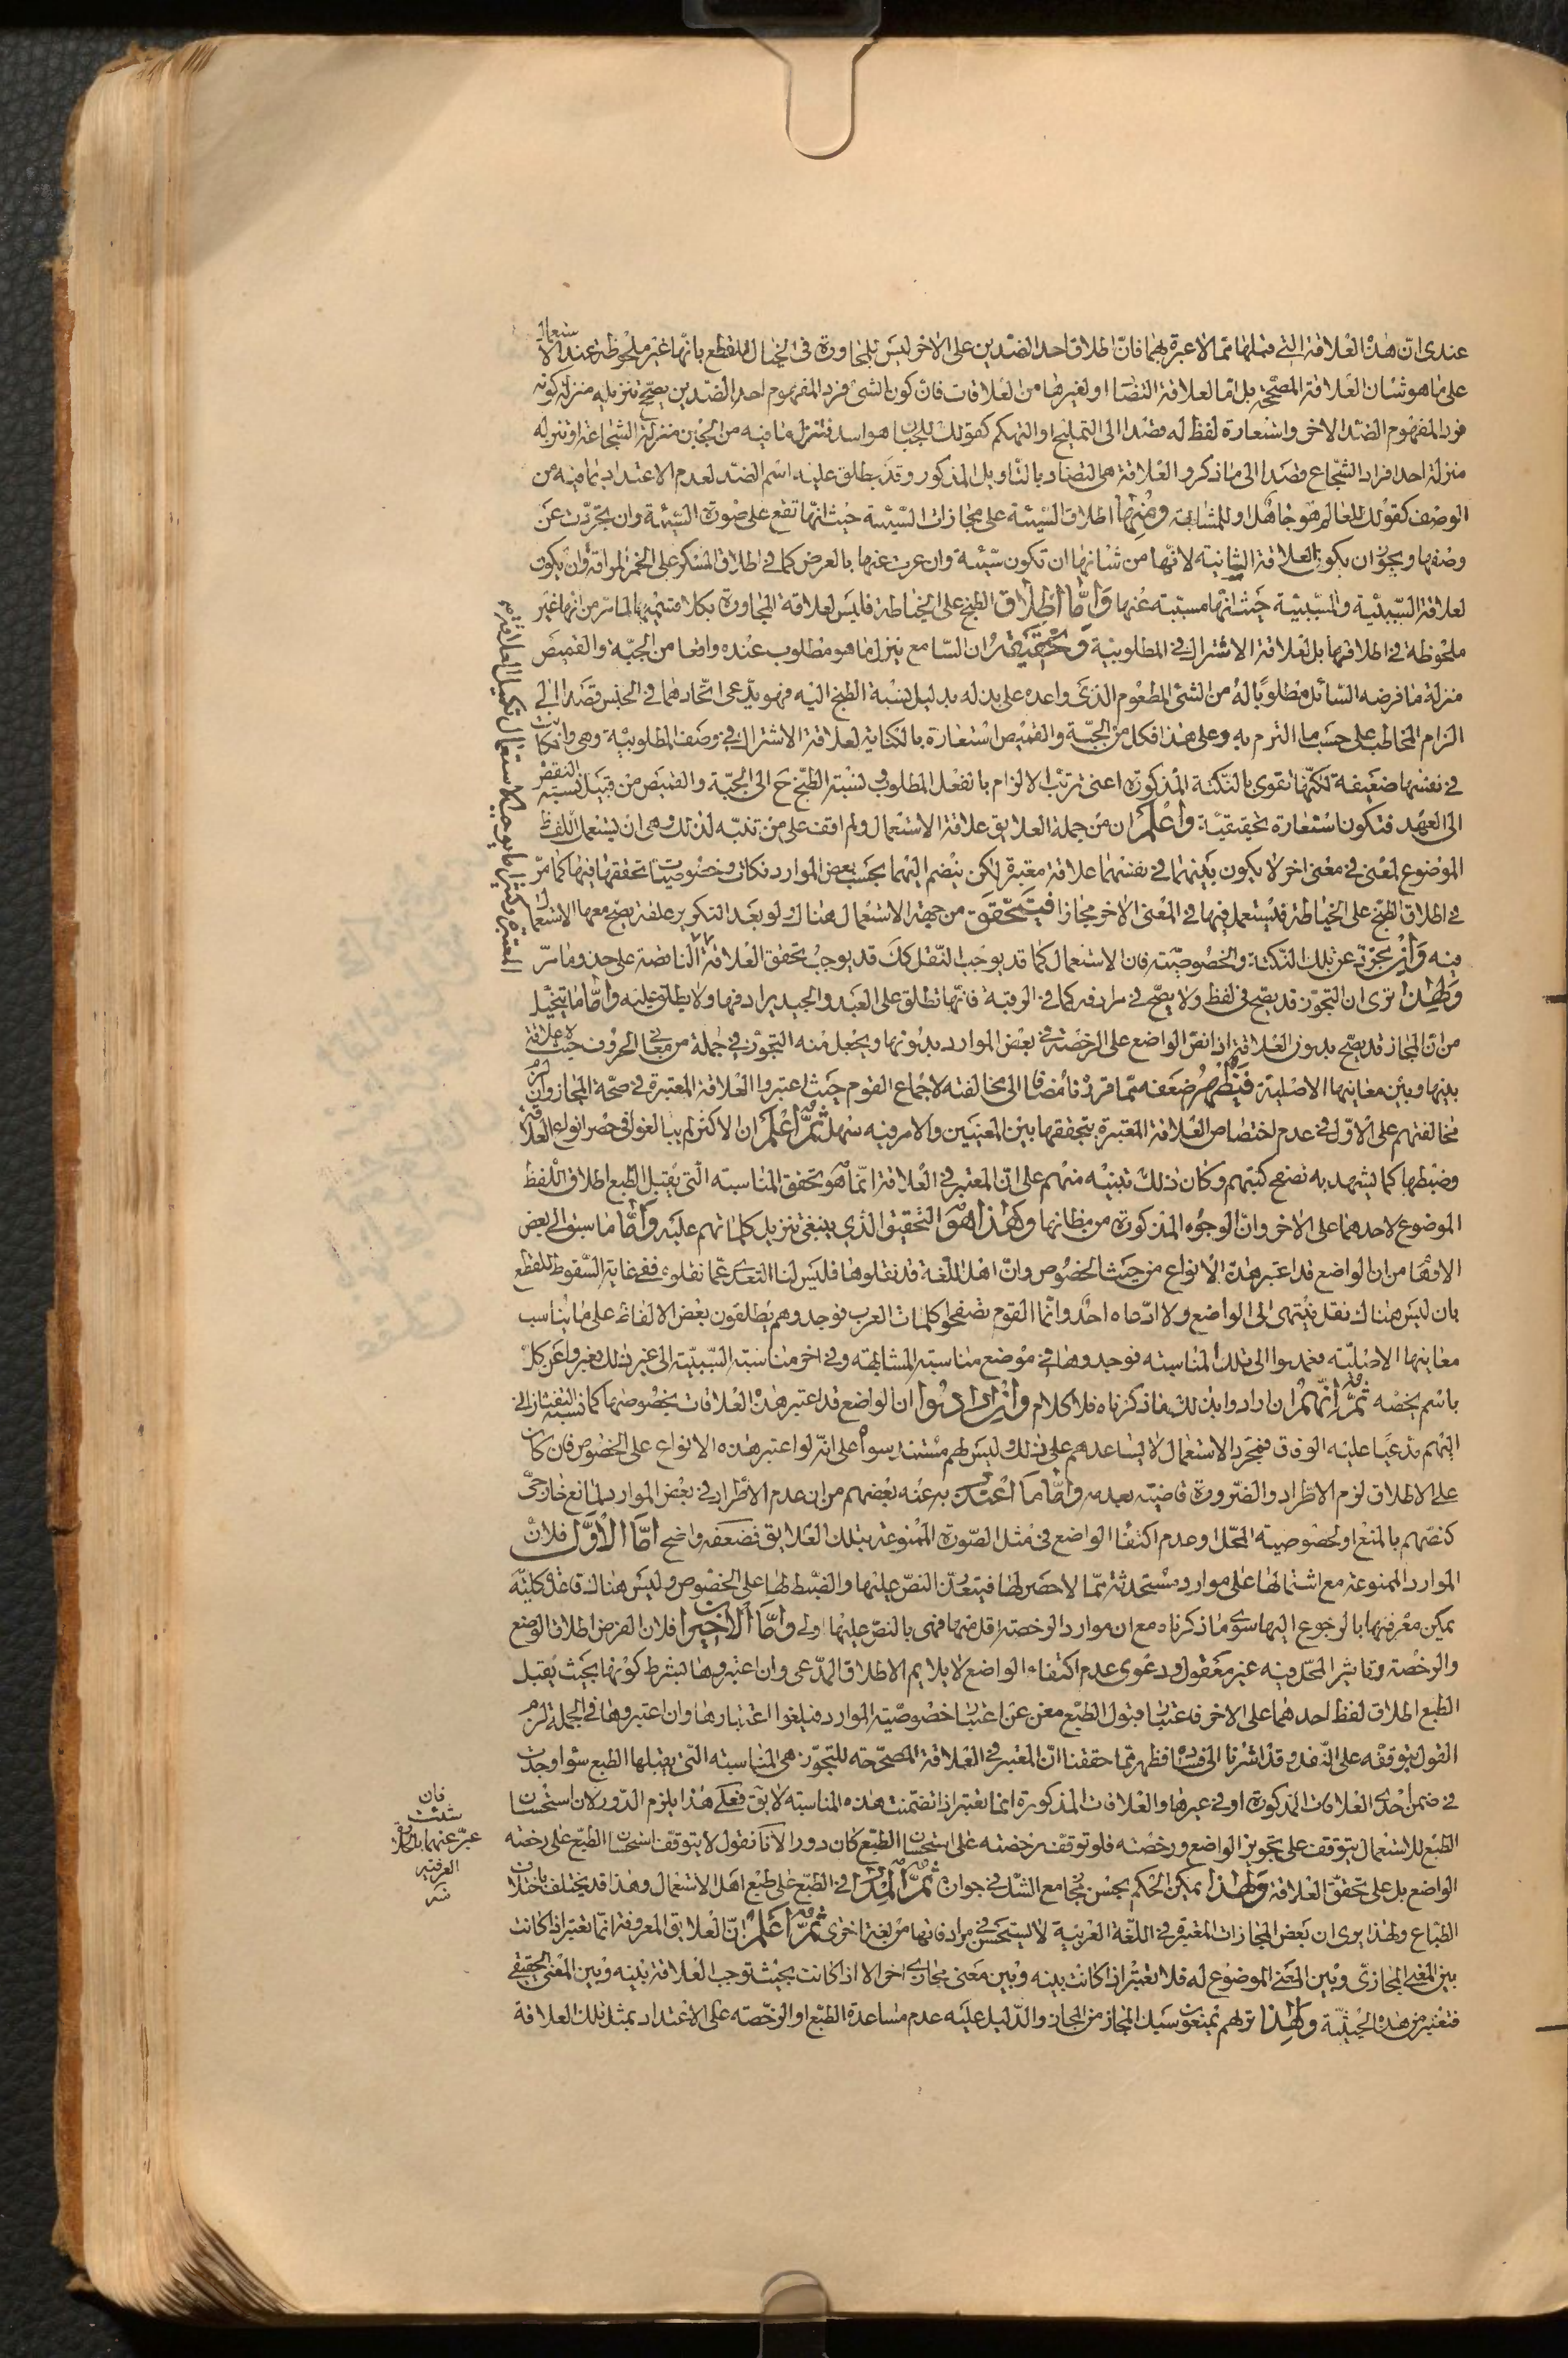 عندى ان هذه العلاقة التى قبلها مما لا عبرة بهما فان اطلاق احد الضدين على الاخر ليس للمجاورة فى الخيال للقطع بانها غير ملحوظة عند الاستعمال
على ما هو شان العلاقة المصححة بل اما لعلاقة التضاد او لغيرها من العلاقات فان كون الشئ فردا لمفهوم احد الضدين يصحح تنزيله منزلة كونه
فردا لمفهوم الضد الاخر واستعارة لفظه له قصدا الى التمليح او التهكم كقولك للجبان هو اسد فتنزل ما فيه من الجبن منزلة الشجاعة او تنزله
منزلة احد افراد الشجاع قصدا الى ما ذكر والعلاقة هى التضاد بالتاويل المذكور وقد يطلق عليه اسم الضد لعدم الاعتداد بما فيه من
الوصف كقولك للعالم هو جاهل او للمشابهة ومنها اطلاق السيئة على مجازات السيئة حيث انها تقع على صورة السيئة وان تجردت عن
وصفها ويجوز ان يكون العلاقة الثانية لانها من شانها ان تكون سيئة وان عريت عنها بالعرض كما فى اطلاق المسكر على الخمر المراقة وان يكون
لعلاقة السببية والمسببية حيث انها مسببة عنها واما اطلاق الطبخ على الخياطة فليس لعلاقة المجاورة بكلا قسميها لما مر من انها غير
ملحوظة فى اطلاقها بل لعلاقة الاشتراك فى المطلوبية وتحقيقه ان السامع ينزل ما هو مطلوب عنده واقعا من الجبة والقميص
منزلة ما فرضه السائل مطلوبا له من الشئ المطعوم الذى واعده على بذله بدليل نسبة الطبخ اليه فهو يدعى اتحادهما فى الجنس قصدا الى
الزام المخاطب على حسب ما التزم به وعلى هذا فكل من الجبة والقميص استعارة بالكناية لعلاقة الاشتراك فى وصف المطلوبية وهى وان كانت
فى نفسها ضعيفة لكنها تقوى بالنكتة المذكورة اعنى ترتب الالزام بالفعل المطلوب ونسبة الطبخ ح الى الجبة والقميص من قبيل نسبة النقض
الى العهد فتكون استعارة تحقيقية واعلم ان من جملة العلايق علاقة الاستعمال ولم اقف على من تنبه لذلك وهى ان يستعمل اللفظ
الموضوع لمعنى فى معنى اخر لا يكون بينهما فى نفسهما علاقة معتبرة لكن ينضم اليهما بحسب بعض الموارد نكات وخصوصيات تحققها فيها كما مر
فى اطلاق الطبخ على الخياطة فيستعمل فيها فى المعنى الاخر مجازا فيتحقق من جهة الاستعمال هناك ولو بعد التكرير علقة يصح معها الاستعمال
فيه وان تجرد عن تلك النكتة والخصوصية فان الاستعمال كما قد يوجب النقل كك قد يوجب تحقق العلاقة الناقصة على حذو ما مر
ولهذا ترى ان التجوز قد يصح فى لفظ ولا يصح فى مرادفه كما فى الرقبة فانها تطلق على العبد والجيد يرادفها ولا يطلق عليه واما ما يتخيل
من ان المجاز قد يصح بدون العلاقة اذا نص الواضع على الرخصة فى بعض الموارد بدونها ويجعل منه التجوز فى جملة من معانى الحروف حيث لا علاقة
بينها وبين معانيها الاصلية فيظهر ضعفه مما قررنا مضافا الى مخالفته لاجماع القوم حيث اعتبروا العلاقة المعتبرة فى صحة المجاز وان لزم
مخالفتهم على الاول فى عدم اختصاص العلاقة المعتبرة بتحققها بين المعنيين والامر فيه سهل ثم اعلم ان الاكثر لم يبالغوا فى حصر انواع العلاقة
وضبطها كما يشهد به تصفح كتبهم وكان ذلك تنبيه منهم على ان المعتبر فى العلاقة انما هو تحقق المناسبة التى يقبل الطبع اطلاق اللفظ
الموضوع لاحدهما على الاخر وان الوجوه المذكورة من مظانها وهذا هو التحقيق الذى ينبغى تنزيل كلماتهم عليه واما ما سبق الى بعض
الاوهام من ان الواضع قد اعتبر هذه الانواع من حيث الخصوص وان اهل اللغة قد نقلوها فليس لنا التعدى عما نقلوه ففى غاية السقوط للقطع
بان ليس هناك نقل ينتهى الى الواضع ولا ادعاه احد وانما القوم تصفحوا كلمات العرب فوجدوهم يطلقون بعض الالفاظ على ما يناسب
معانيها الاصلية فعمدوا الى تلك المناسبة فوجدوها فى موضع مناسبة المشابهة وفى اخر مناسبة السببية الى غير ذلك فعبروا عن كل
باسم يخصه ثم انهم ان ارادوا بذلك ما ذكرناه فلا كلام وان ارادوا ان الواضع قد اعتبر هذه العلاقات بخصوصها كما نسبه التفتازانى
اليهم مدعيا عليه الوفاق فمجرد الاستعمال لا يساعدهم على ذلك وليس لهم مستند سواه على انه لو اعتبر هذه الانواع على الخصوص فان كان
على الاطلاق لزم الاطراد والضرورة قاضية بعدمه واما ما اعتذر به عنه بعضهم من ان عدم الاطراد فى بعض الموارد لمانع خارجى
كنصهم بالمنع او لخصوصية المحل وعدم اكتفاء الواضع فى مثل الصورة الممنوعة بتلك العلايق فضعفه واضح اما الاول فلان
الموارد الممنوعة مع اشتمالها على موارد مستحدثة مما لا حصر لها فيتعذر النص عليها والضبط لها على الخصوص وليس هناك قاعدة كلية
يمكن معرفتها بالرجوع اليها سوى ما ذكرناه مع ان موارد الرخصة اقل منها فهى بالنص عليها اولى واما الاخيران فلان الفرض اطلاق الوضع
والرخصة وتاثير المحل فيه غير معقول ودعوى عدم اكتفاء الواضع لا يلايم الاطلاق المدعى وان اعتبروها بشرط كونها بحيث يقبل
الطبع اطلاق لفظ احدهما على الاخر فاعتبار قبول الطبع مغن عن اعتبار خصوصية الموارد فيلغوا اعتبارها وان اعتبروها فى الجملة لزم
القول بتوقفه على النقل وقد اشرنا الى فساده فظهر مما حققنا ان المعتبر فى العلاقة المصححة للتجوز هى المناسبة التى يقبلها الطبع سواء وجدت
فى ضمن احدى العلاقات المذكورة او فى غيرها والعلاقات المذكورة انما تعتبر اذا تضمنت هذه المناسبة لا يق فعلى هذا يلزم الدور لان استحسان
الطبع للاستعمال يتوقف على تجويز الواضع ورخصته فلو توقف رخصته على استحسان الطبع كان دورا لانا نقول لا يتوقف استحسان الطبع على رخصة
الواضع بل على تحقق العلاقة ولهذا يمكن الحكم بحسن مجامع الشك فى جوازه ثم المدار فى الطبع على طبع اهل الاستعمال وهذا قد يختلف باختلاف
الطباع ولهذا يرى ان بعض المجازات المعتبرة فى اللغة العربية لا يستحسن فى مرادفاتها من لغة اخرى ثم اعلم ان العلايق المعروفة انما تعتبر اذا كانت
بين المعنى المجازى وبين المعنى الموضوع له فلا تعتبر اذا كانت بينه وبين معنى مجازى اخر الا اذا كانت بحيث توجب العلاقة بينه وبين المعنى الحقيقى
فتعتبر من هذه الحيثية ولهذا تراهم يمنعون سبك المجاز من المجاز والدليل عليه عدم مساعدة الطبع او الرخصة على الاعتداد بمثل تلك العلاقة
فان
شئت
عبر عنهما
العرفية